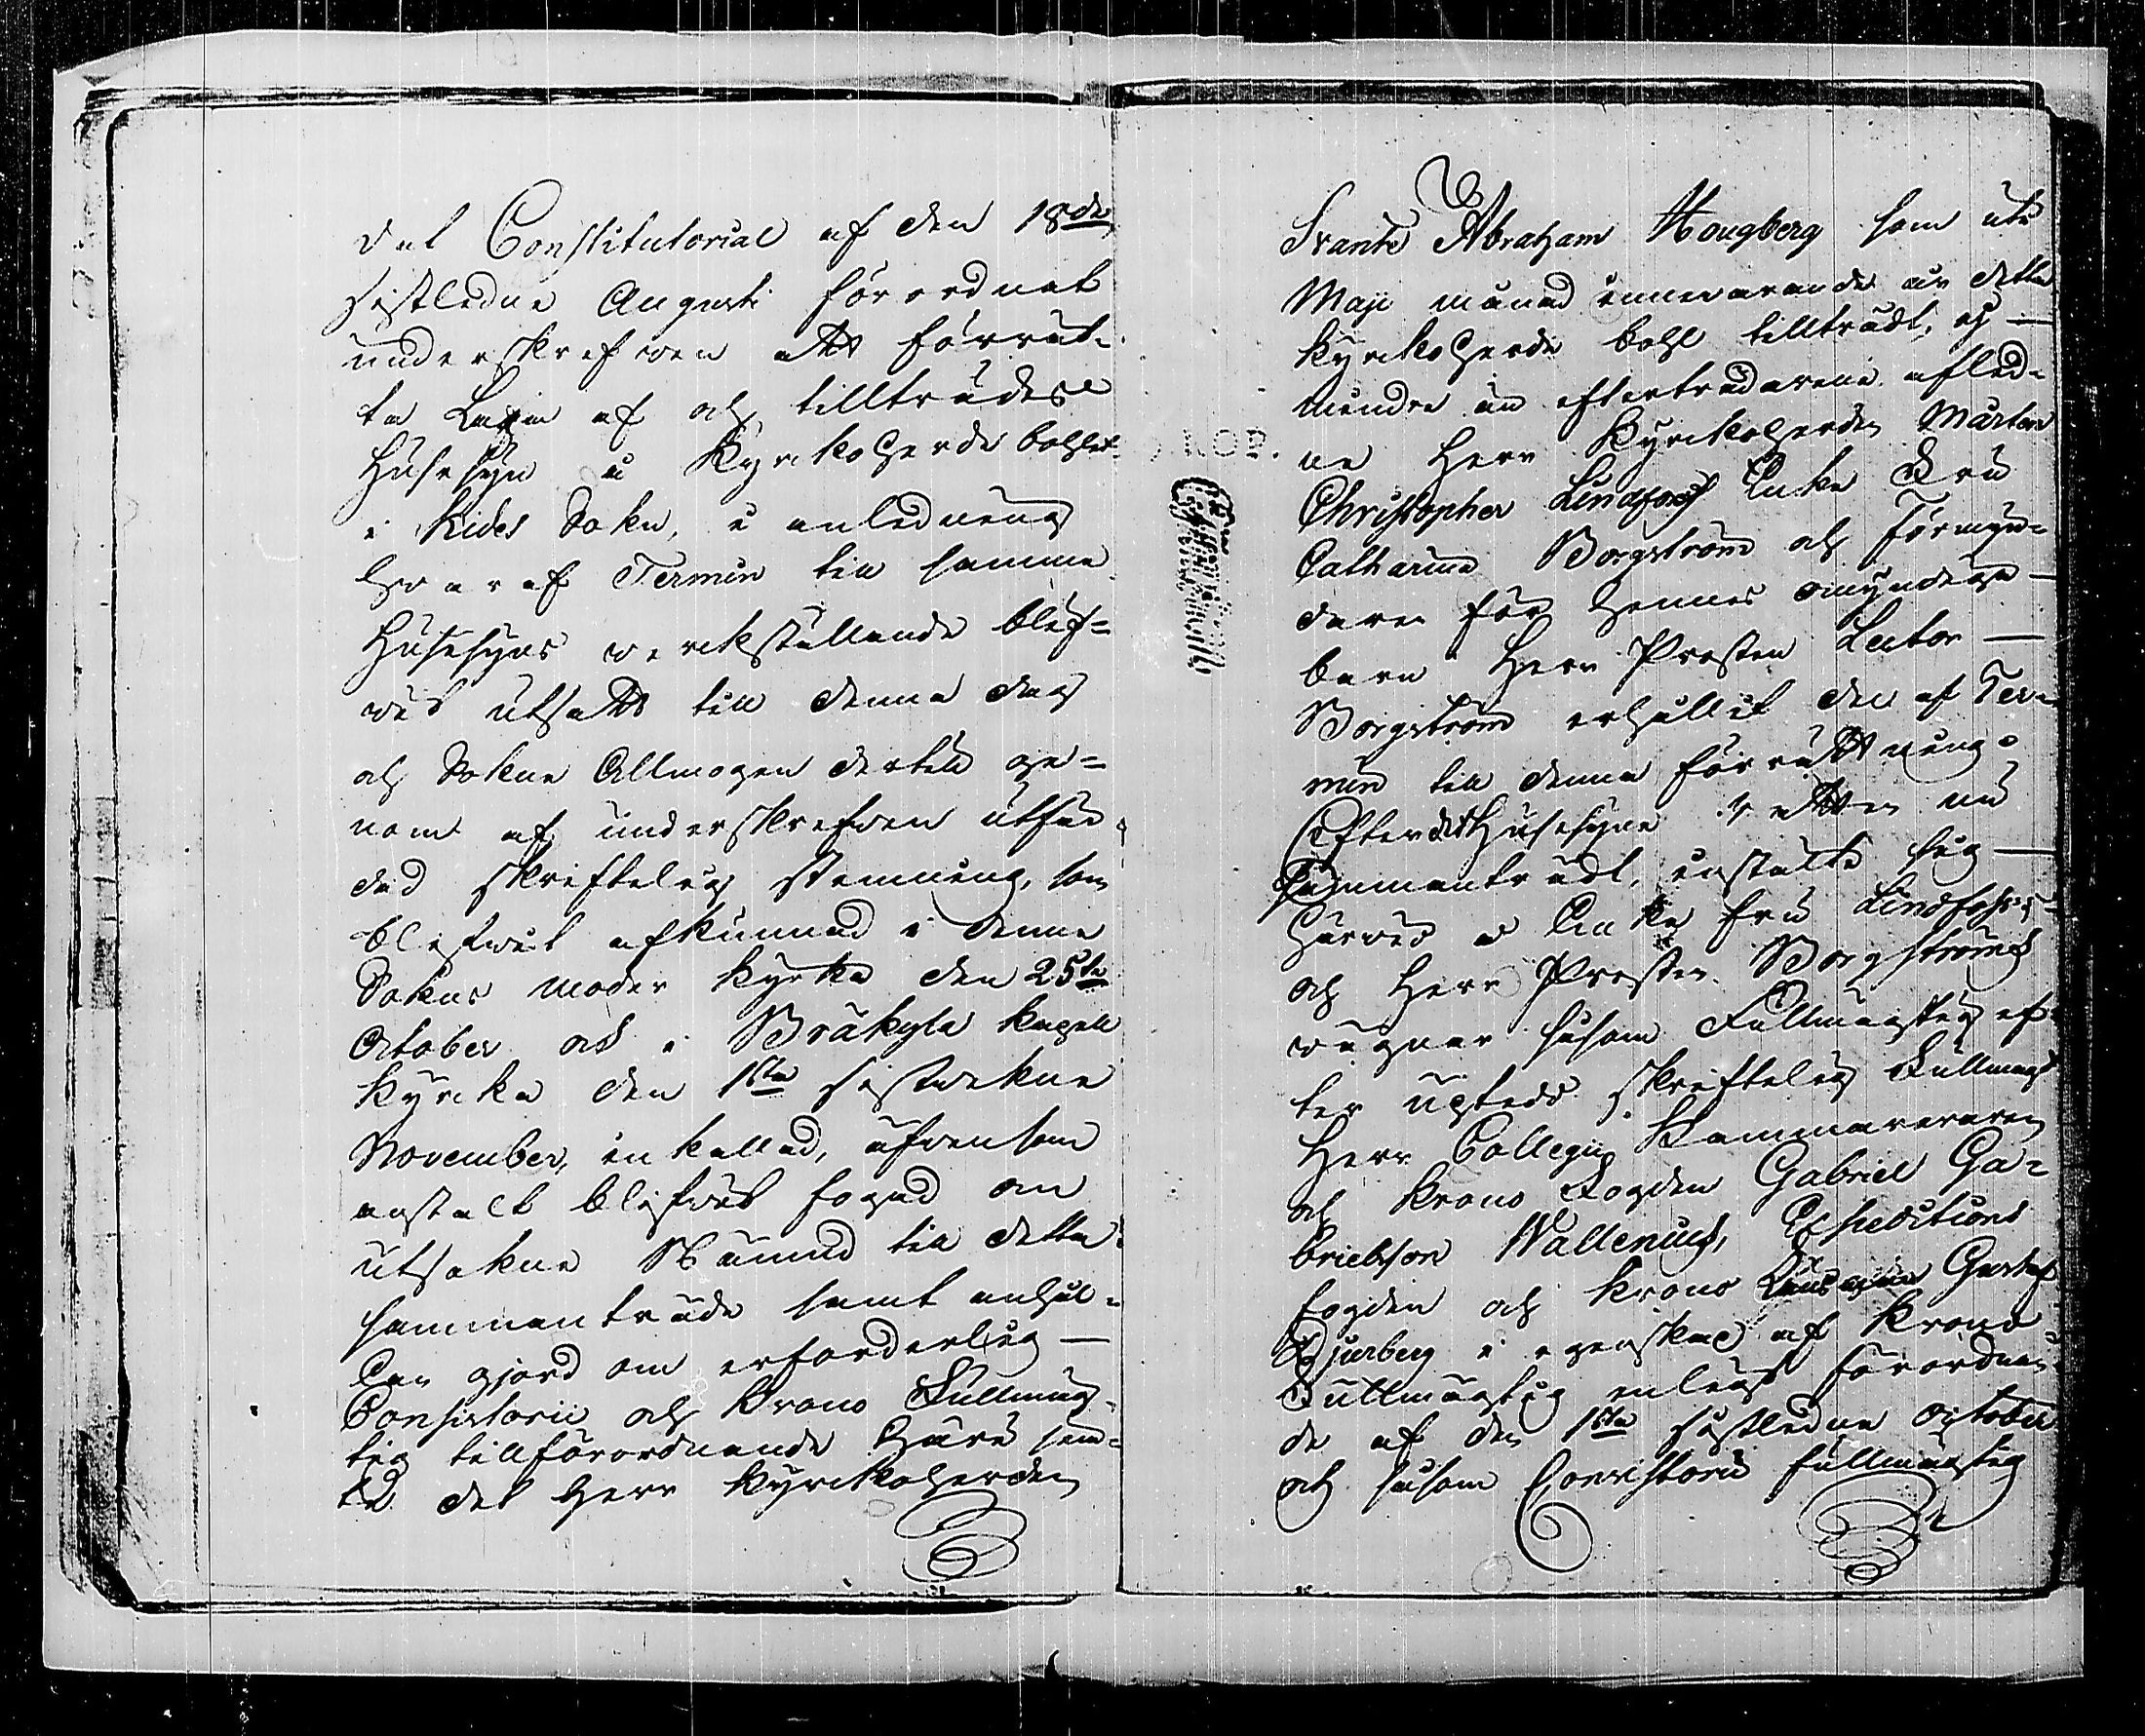 dat Constitutorial af den 18de
sistledne Augusti förordnat
underskrefwen att förrät-
ta Laga af och tillträdes
Husesyn å Kyrckoherde bohlet
i Kides Sokn, i anledning
hwaraf Termin till samma
Husesyns werckställande blif-
wit utsatt till denna dag
och Sokne Allmogen dertill ge-
nom af underskrefwen utfär-
dad skriftelig stemning, som
blifwit afkunnad i denna
Sokns moder kyrka den 25te
October och i Bräkylä kapell
Kyrcka den 1sta sistwekne
November, inkallad, äfwensom
anstalt blifwit fogad om
utsokne Nämnd till detta
sammanträde samt anhål-
lan gjord om erforderlig
Consistorii och Krono Fullmäg-
tig tillförordnande härå jem-
te det Herr Kyrckoherden
Svante Abraham Hougberg som uti
Maji månad innewarande år detta
Kyrckoherde bohl tillträdt, ej
mindre än efterträdarens afled-
ne Herr Kyrckoherden Mårten
Christopher Lindfors Enka Fru
Catharina Borgström och Förmyn-
daren för hennes omyndiga
barn Herr Prosten Lector
Borgström erhållit del af Ter-
min till denna förrättning.
Efter det Husesyne Rätten nu
Sammanträdt, instälte sig
härwid å Enke fru Lindfors
och Herr Prosten Borgströms
wägnar såsom Fullmägtig ef-
ter uptedd skriftelig Fullmagt
Herr Collegii Kammereraren
och Krono Fogden Gabriel Ga-
brielsson Wallenius, Expeditions
fogden och Krono Länsman Gustaf
Djurberg i egenskap af Krono
Fullmägtig enligt förordnan-
de af den 1sta sistledne October
och såsom Consistorii fullmägtig